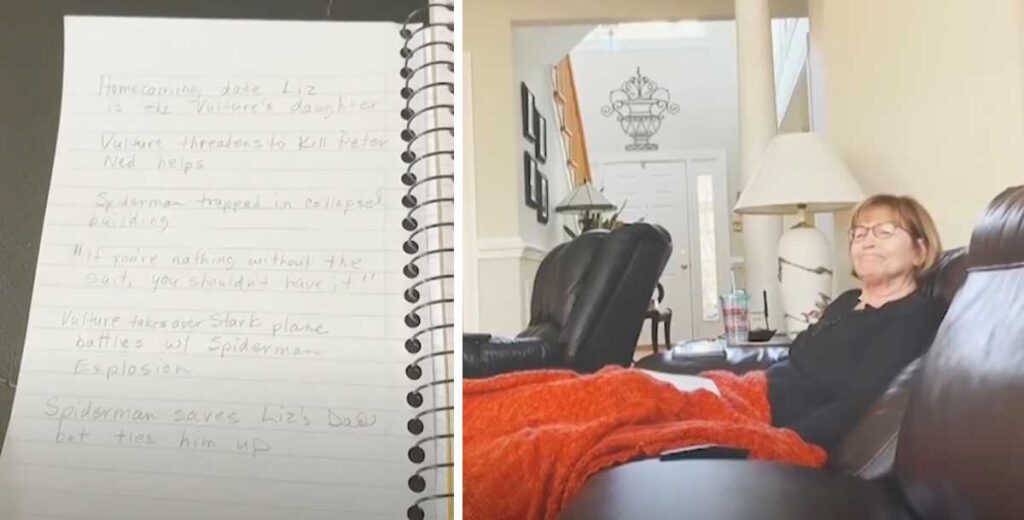 Homecoming date Liz
is the Vulture's daughter
Vulture threatens to kill Peter
Ned helps
Spiderman trapped in collapsed
building
"If you're nothing without the
suit, you shouldn't have it"
Vulture takes over Stark plane
battles w/ Spiderman
Explosion
Spiderman saves Liz's Dad
but ties him up